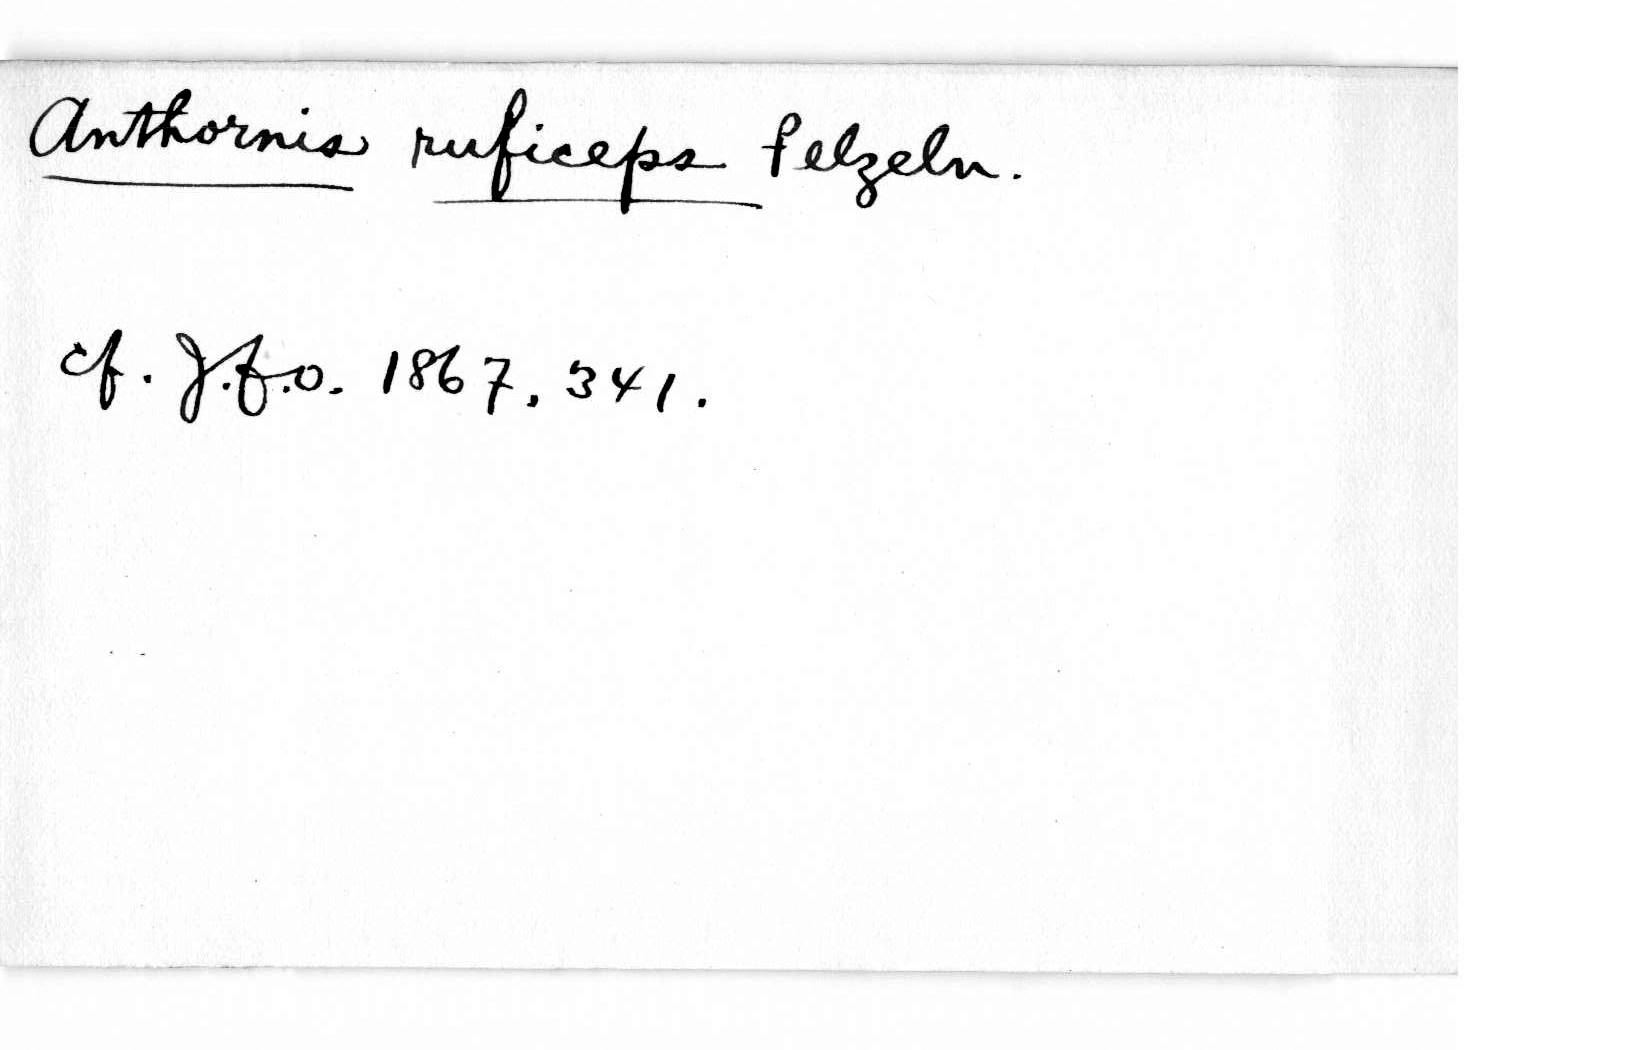 Anthornis ruficeps Pelzeln.
cf. J.f.O. 1867, 341.